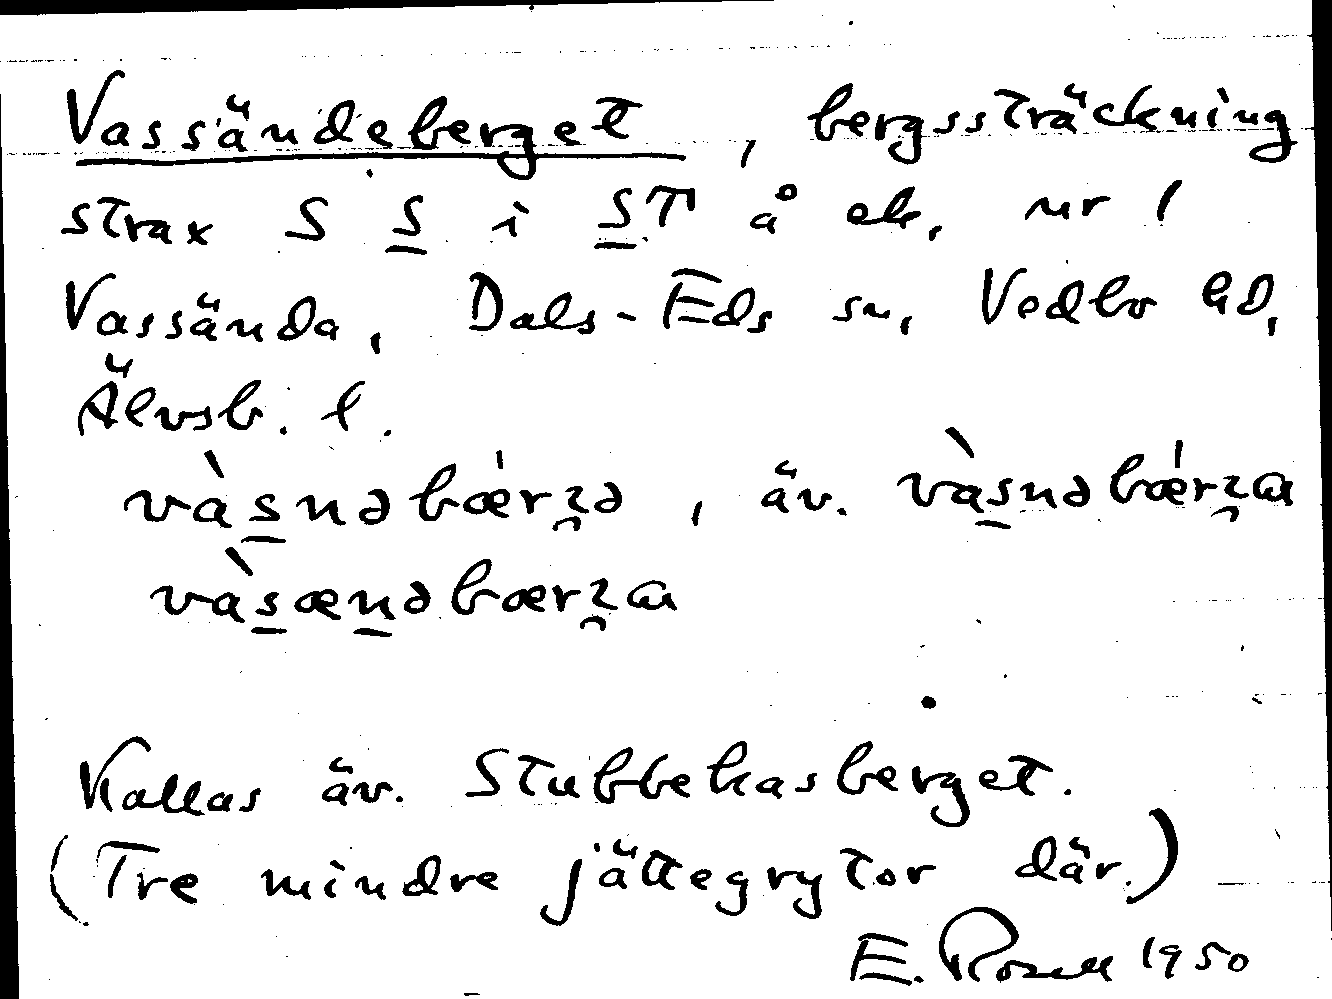 Vassändeberget, bergssträckning
strax S S i ST å ek. nr 1
Vassända, Dals-Eds sn, Vedbo hd,
Älvsb. l.
vàs̲nəbæ̍rʒ̮ə, äv. vàs̲nəbæ̍rʒ̮a
vàs̲æn̲əbærʒ̮a
Kallas äv. Stubbekasberget.
(Tre mindre jättegrytor där.)
E. Rosell 1950